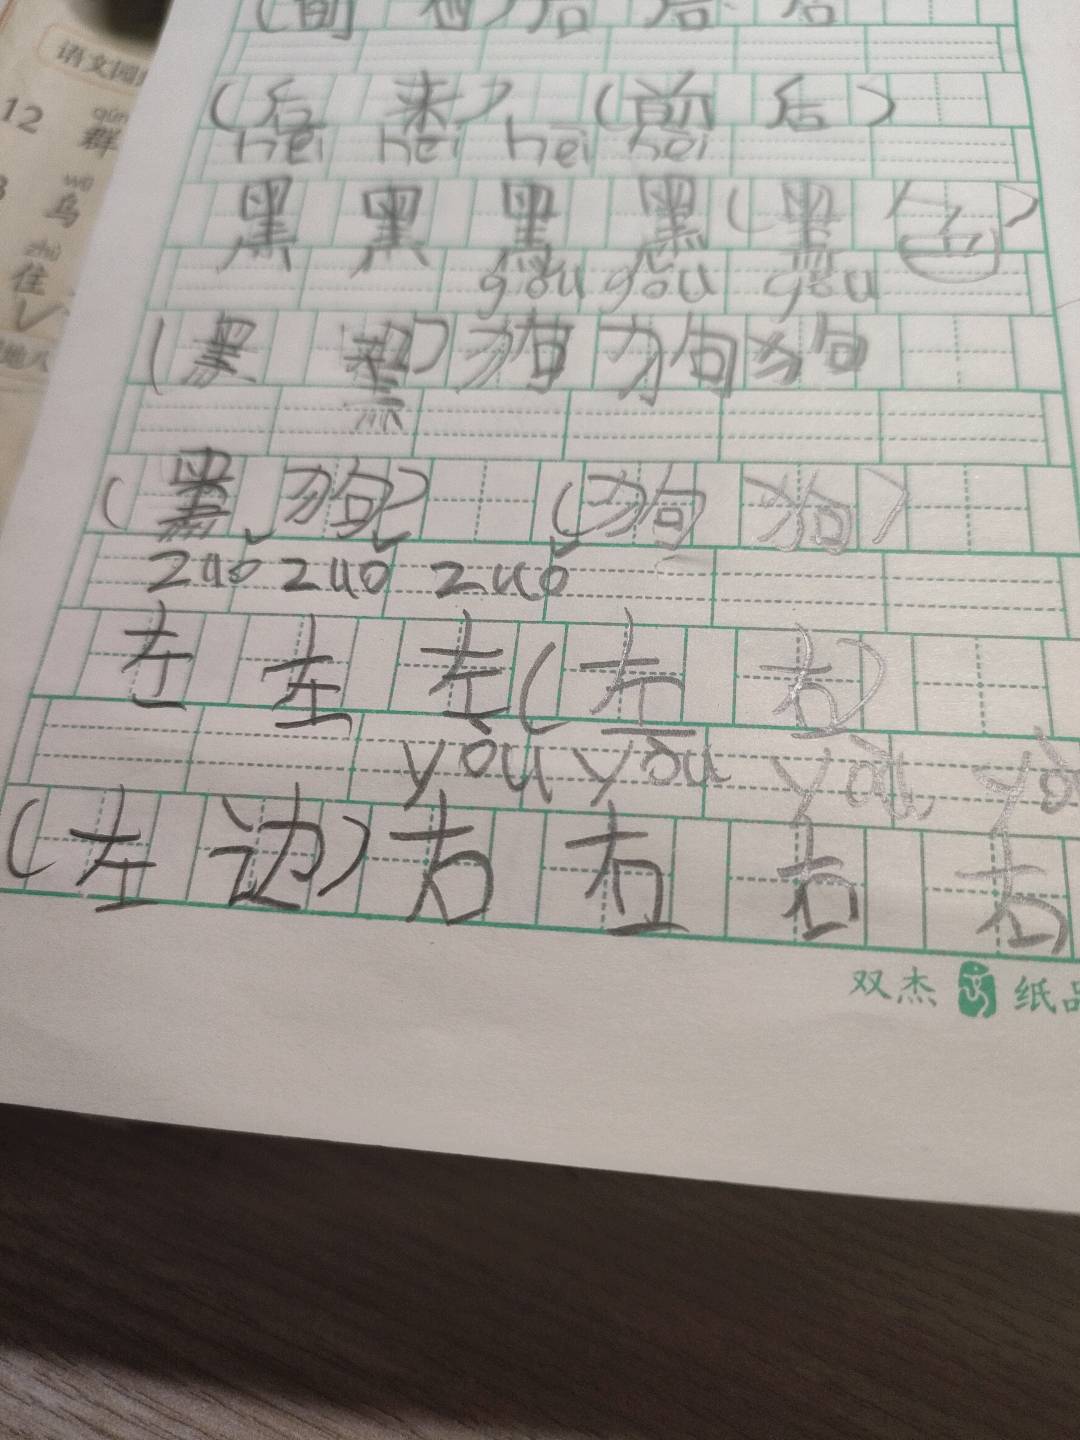 语文园
12
qún
群
wū
乌
zhù
住
(后 来) (前 后)
hēi hēi hēi hēi
黑 黑 黑 黑 (黑 色)
gǒu gǒu gǒu
(黑 ) 狗 狗 狗
(黑 狗) (狗 狗)
zuǒ zuǒ zuǒ
左 左 左 (左 右)
yòu yòu yòu yò
(左 边) 右 右 右 右
双杰 纸品